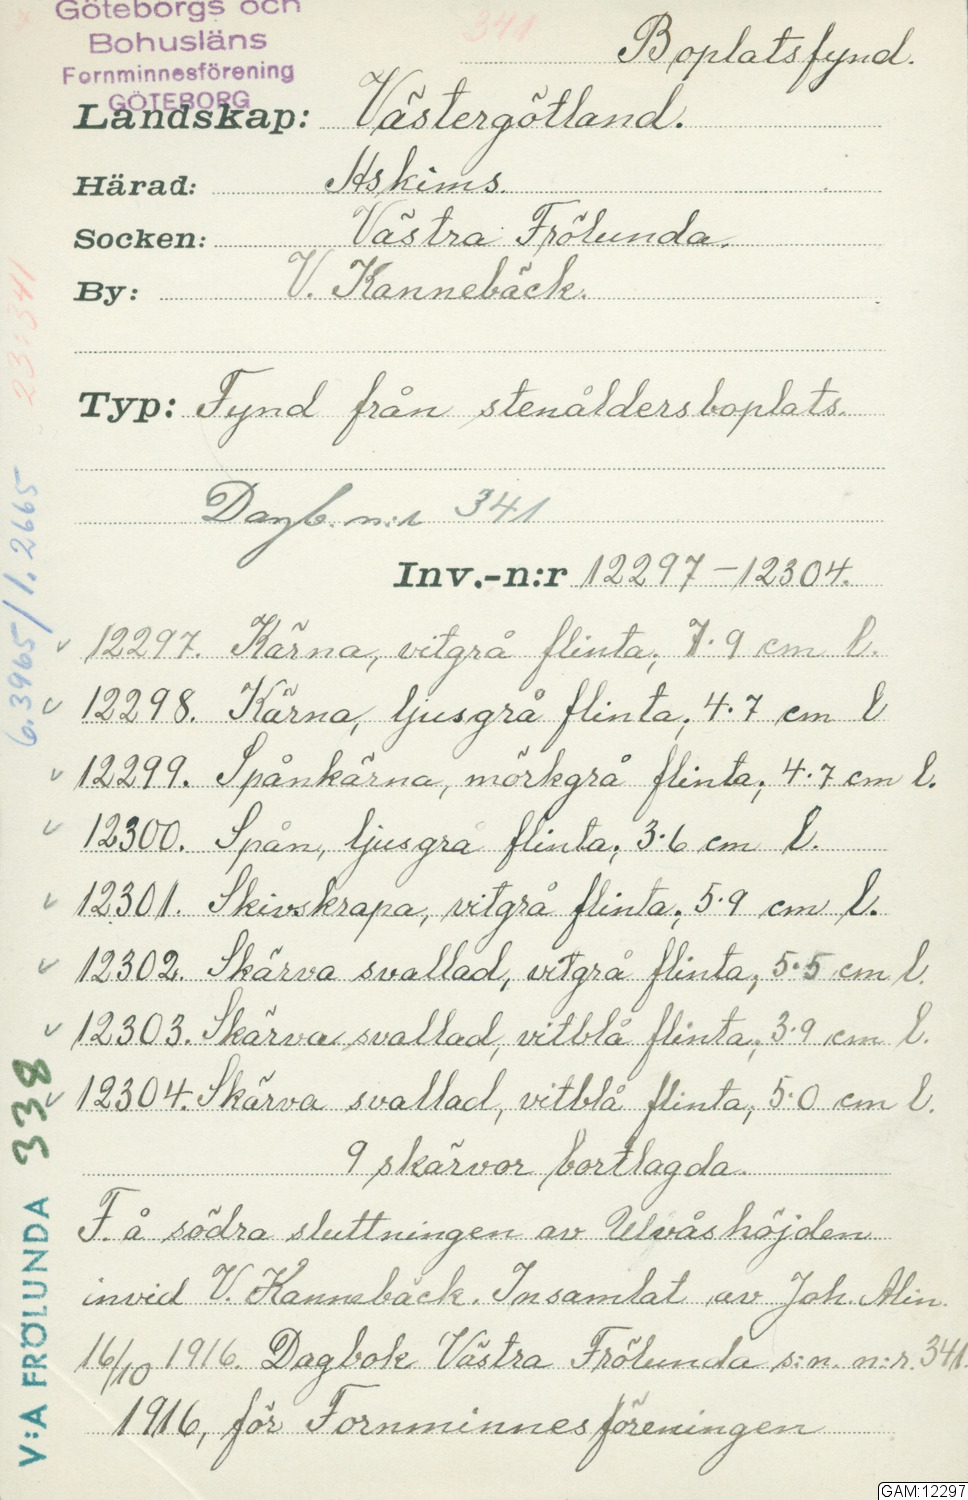 Göteborgs och
Bohusläns
Fornminnesförening
GÖTEBORG
341
Boplatsfynd.
Landskap: Västergötland.
Härad: Askims.
Socken: Västra Frölunda.
By: V. Kannebäck.
Typ: Fynd från stenåldersboplats.
Dagb. n:r 341
Inv.-n:r 12297-12304.
12297. Kärna, vitgrå flinta; 7.9 cm l.
12298. Kärna, ljusgrå flinta; 4.7 cm l
12299. Spånkärna, mörkgrå flinta; 4.7 cm l.
12300. Spån, ljusgrå flinta; 3.6 cm l.
12301. Skivskrapa, vitgrå flinta; 5.9 cm l.
12302. Skärva svallad, vitgrå flinta; 5.5 cm l.
12303. Skärva svallad, vitblå flinta; 3.9 cm l.
12304. Skärva svallad, vitblå flinta; 5.0 cm l.
9 skärvor bortlagda.
F. å södra sluttningen av Ulvåshöjden
invid V. Kannebäck. Insamlat av Joh. Alin.
16/10 1916. Dagbok Västra Frölunda s:n. n:r. 341.
1916, för Fornminnesföreningen
23:341
6.3965/1.2665
V:A FRÖLUNDA 338
GAM:12297